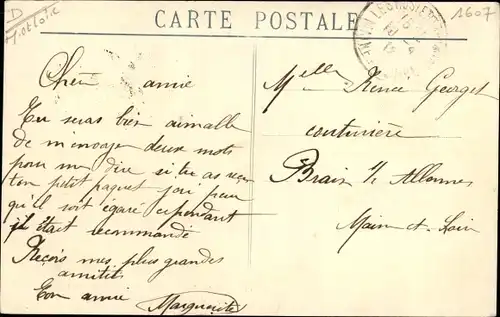 D
1607
CARTE POSTALE
Chère amie
Tu seras bien aimable
de m'envoyer deux mots
pour me dire si tu as reçu
ton petit paquet j'ai peur
qu'il soit égaré cependant
il était recommandé
Reçois mes plus grandes
amitiés
Ton amie
Marguerite
Melle Renée Georget
couturière
Brain s/ Allonnes
Main et Loire